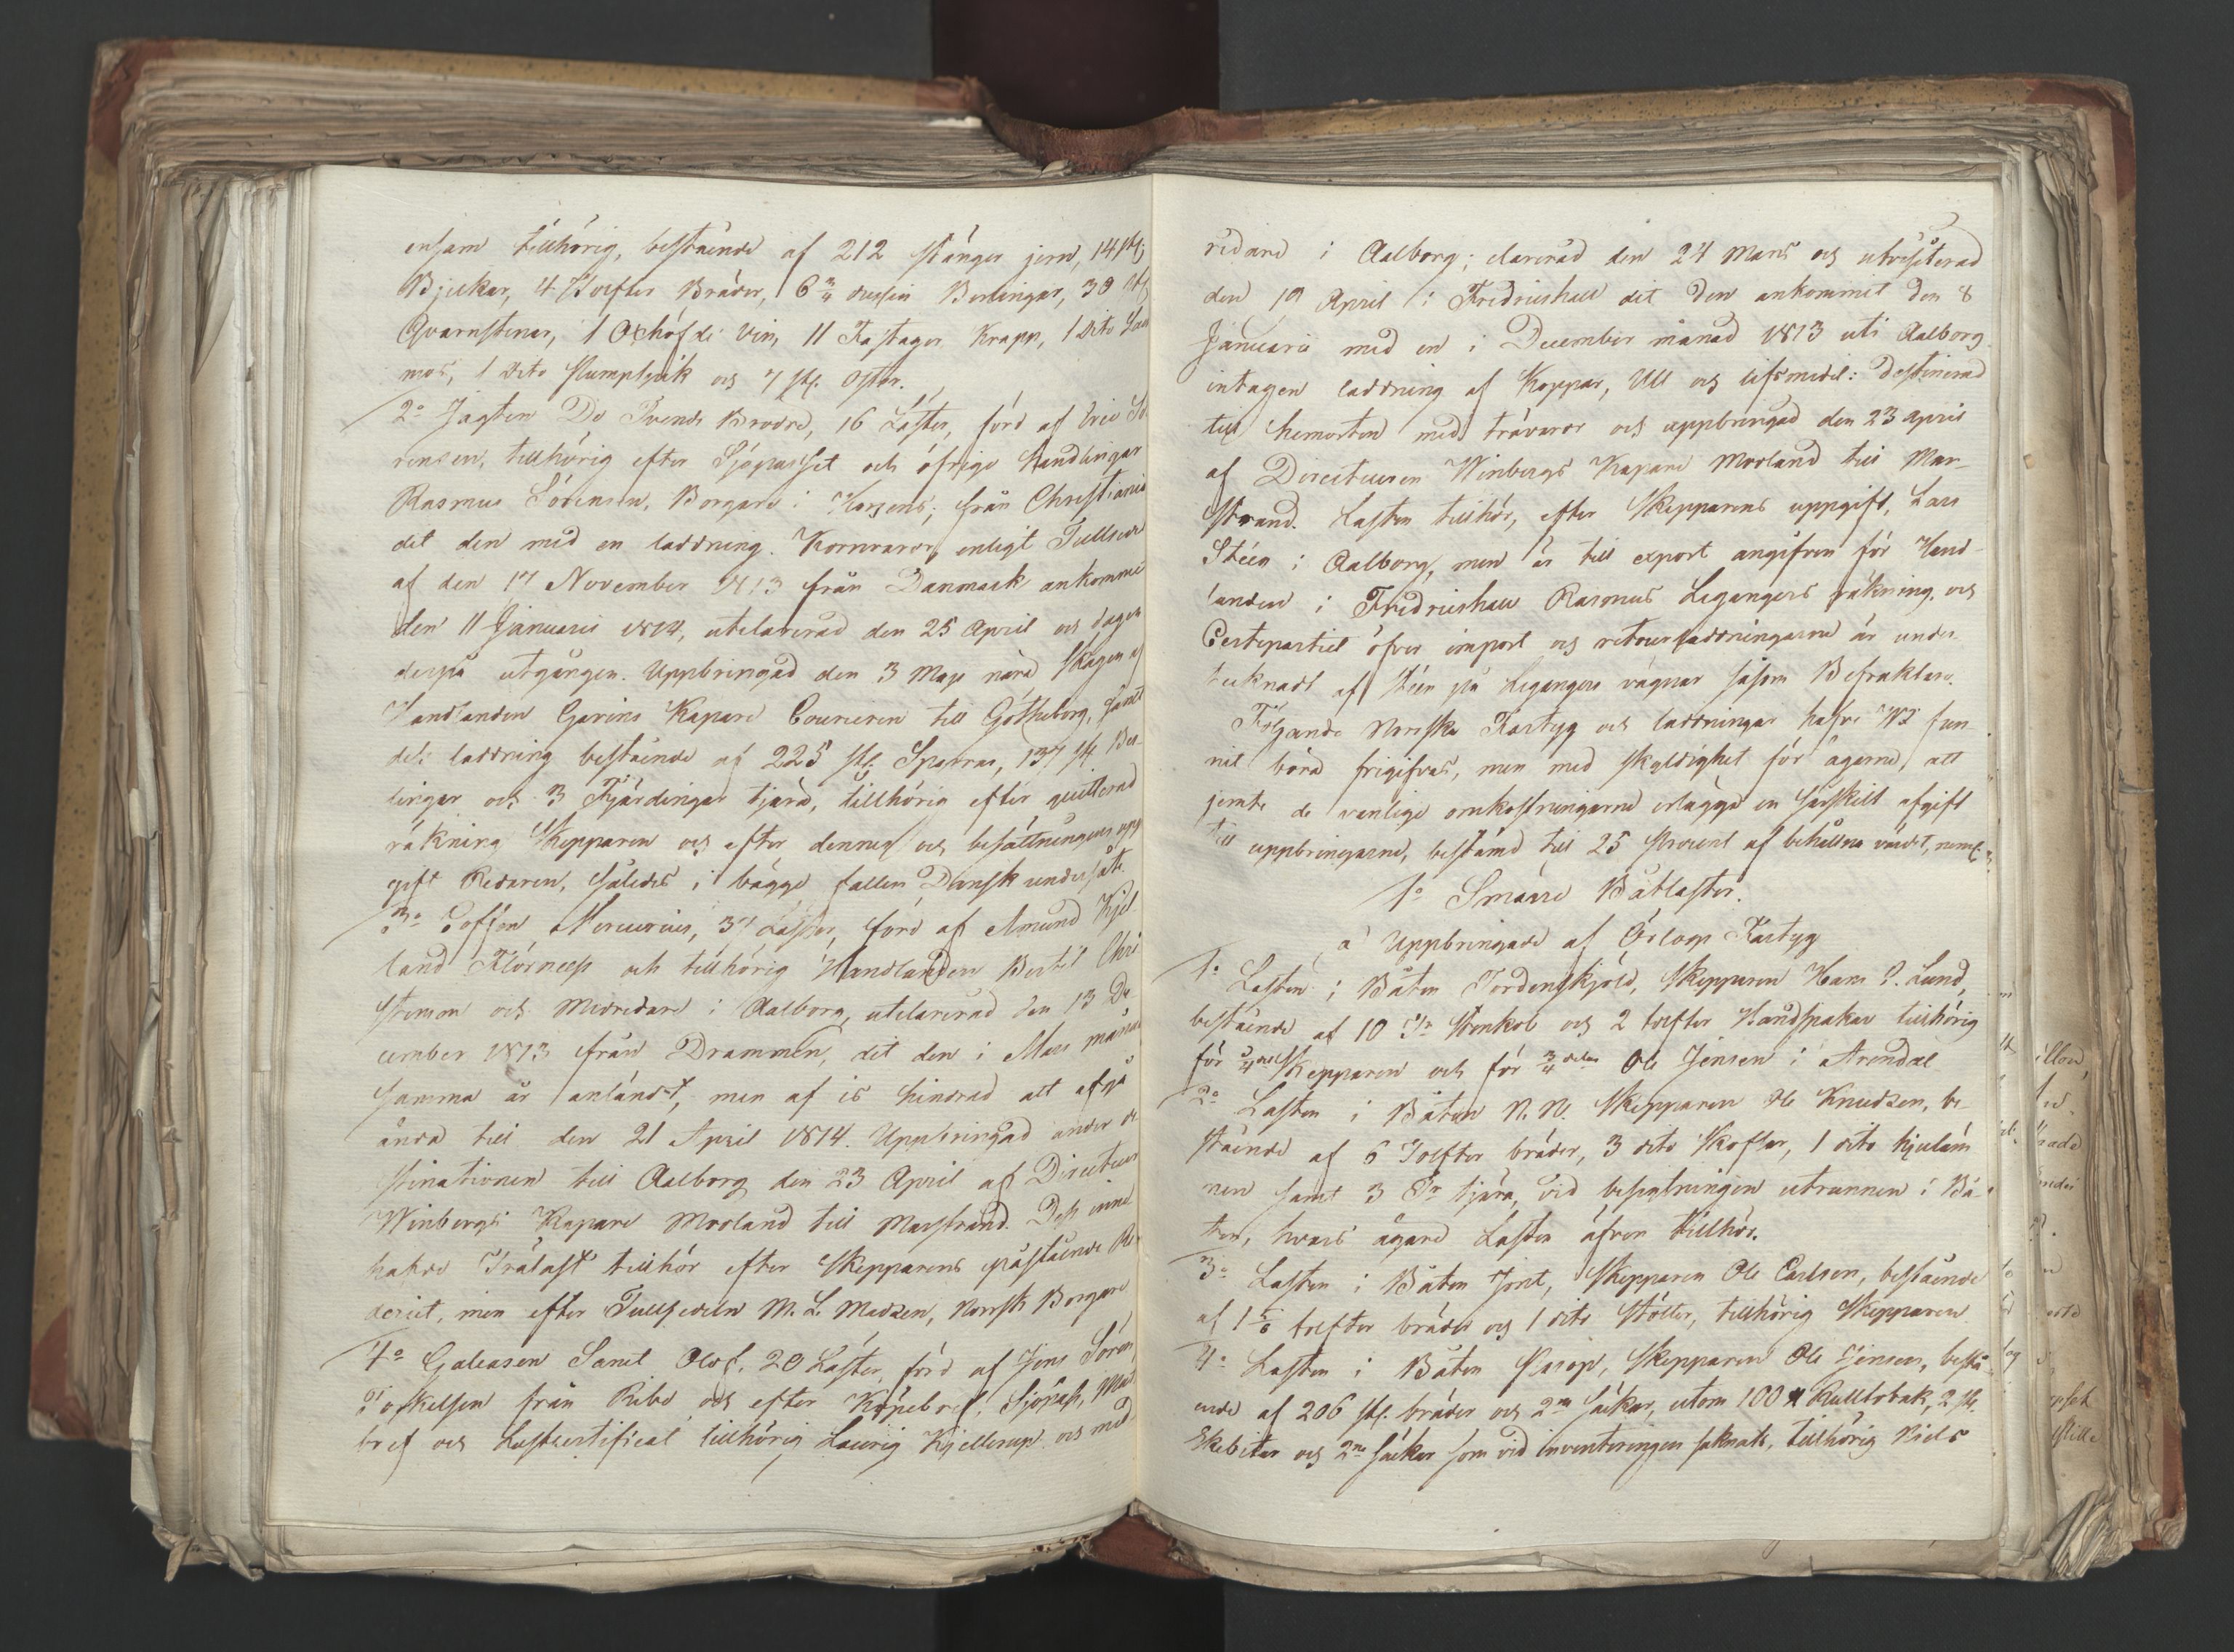 ensam tillhörig, bestående af 212 stänger jern, 14 st:
Bjelkar, 4 Tolfter Bräder, 6 3/4 dussin Berlingar, 30 st:
Qvarnstenar, 1 Oxhöfde Vin, 11 Fastager Krapp, 1 dito
mos, 1 dito och 7 st. Ostar.
2o Jagten De Tvende Brødre, 16 Läster, förd af Eric Sö
rensen, tillhörig efter Sjöpasset och öfrige handlingar
Rasmus Sörensen, Borgare i Horsens; från Christiania
dit den med en laddning Kornvaror, enligt Tullsedel
af den 17 November 1813 från Danmark ankommit
den 11 Januarii 1814, utclarerad den 25 April och dagen
derpå utgången. Uppbringad den 3 Maji nära Skagen af
Handlanden Gavins Kapare Courieren till Götheborg, samt
dess laddning bestående af 225 st. Sparrar, 137 st. Ber-
lingar och 3 Fjerdingar tjära, tillhörig efter quitterad
räkning Skepparen och efter dennes och besättningens upp
gift Redaren, således i bägge fallen Dansk undersåte.
3o Mercurius, 37 Läster, förd af Amund Kjel
land och tillhörig Handlanden Bertel Chri
stensen och Medredare i Aalborg, utclarerad den 13 De
cember 1813 från Drammen, dit den i Mars månad
samma år anländt, men af is hindrad att afgå
ända till den 21 April 1814. Uppbringad under de
stinationen till Aalborg den 23 April af Directeur
Winbergs Kapare Morland till Marstrand. Dess inne
hafde Trälast tillhör efter Skepparens påstående Re
deriet, men efter Tullsedeln M. L. Madsen, Norrsk Borgare
4o Galeasen Sanct Olof, 20 Läster, förd af Jens Sören
från Ribe och efter Köpebref, Sjöpass, Mät
bref och Lastcertificat tillhörig Laurig Kjellerup och med
redare i Aalborg; clarerad den 24 Mars och utvisiterad
den 19 April i Fredrikshall dit den ankommit den 8
Januarii med en i December månad 1813 uti Aalborg
intagen laddning af Koppar, Ull och lifsmedel: destinerad
till hemorten med trävaror och uppbringad den 23 April
af Directeuren Winbergs Kapare Morland till Mar-
strand. Lasten tillhör, efter Skepparens uppgift, Lars
Stéen i Aalborg, men är till export angifven för Hand-
landen i Fredrikshall Rasmus Legangers räkning, och
Certepartiet öfver import och retourladdningarne är under
tecknadt af Stéen på Legangers vägnar såsom Befraktare.
Följande Norrska Fartyg och laddningar hafve Wi fun-
nit böra frigifvas, men med skyldighet för ägarne, att
jemte de vanlige omkostningarne erlägga en särskilt afgift
till uppbringarne, bestämd till 25 procent af behållna värdet, neml:
1o Smärre Båtlaster.
a Uppbringade af Örlogs Fartyg
1o Lasten i Båten Tordenskjöld, Skepparen Hans P. Lund,
bestående af 10 Tr Stenkol och 2 tolfter Handspakar tillhörig
för 1/4 del Skepparen och för 3/4 delar Ole Jensen i Arendal
2o Lasten i Båten N. N. Skepparen Ole Knudsen, be-
stående af 6 Tolfter bräder, 3 dito Skofter, 1 dito
nen samt 3 Tr tjära, vid besigtningen utrunnen i Bå-
ten, hvars ägare Lasten äfven tillhör.
3o Lasten i Båten Skepparen Ole Carlsen, bestående
af tolfter bräder och 1 dito Stötter, tillhörig Skepparen
4o Lasten i Båten Skepparen Ole Jensen, bestå-
ende af 206 st. bräder och 2ne säckar, utom 100 ℔ Rulltobak, 2 st.
och 2ne säckar som vid inventeringen saknats, tillhörig Niels